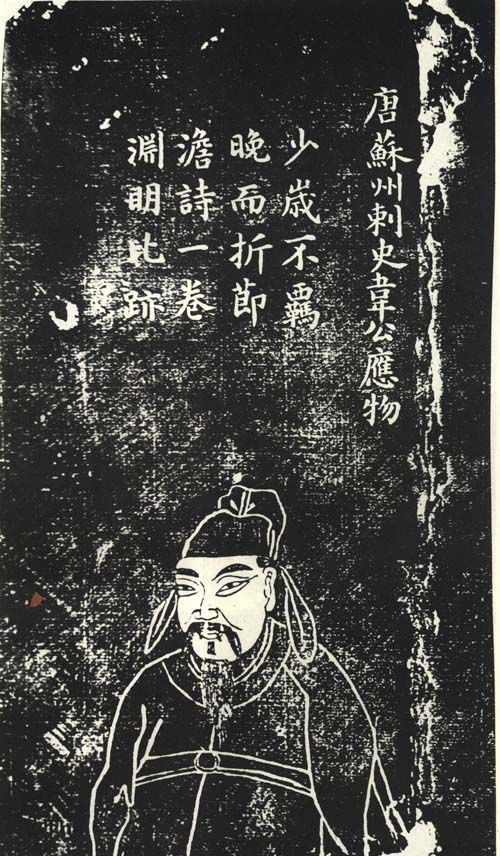 唐蘇州刺史韋公應物
少歲不羈
晚而折節
澹詩一卷
淵明比跡